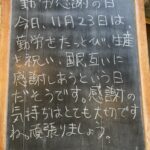 勤労感謝の日
今日、11月23日は、
勤労をたっとび、生産
を祝い、国民互いに
感謝しあうという日
だそうです。感謝の
気持ちはとても大切です
ね。頑張りましょう。